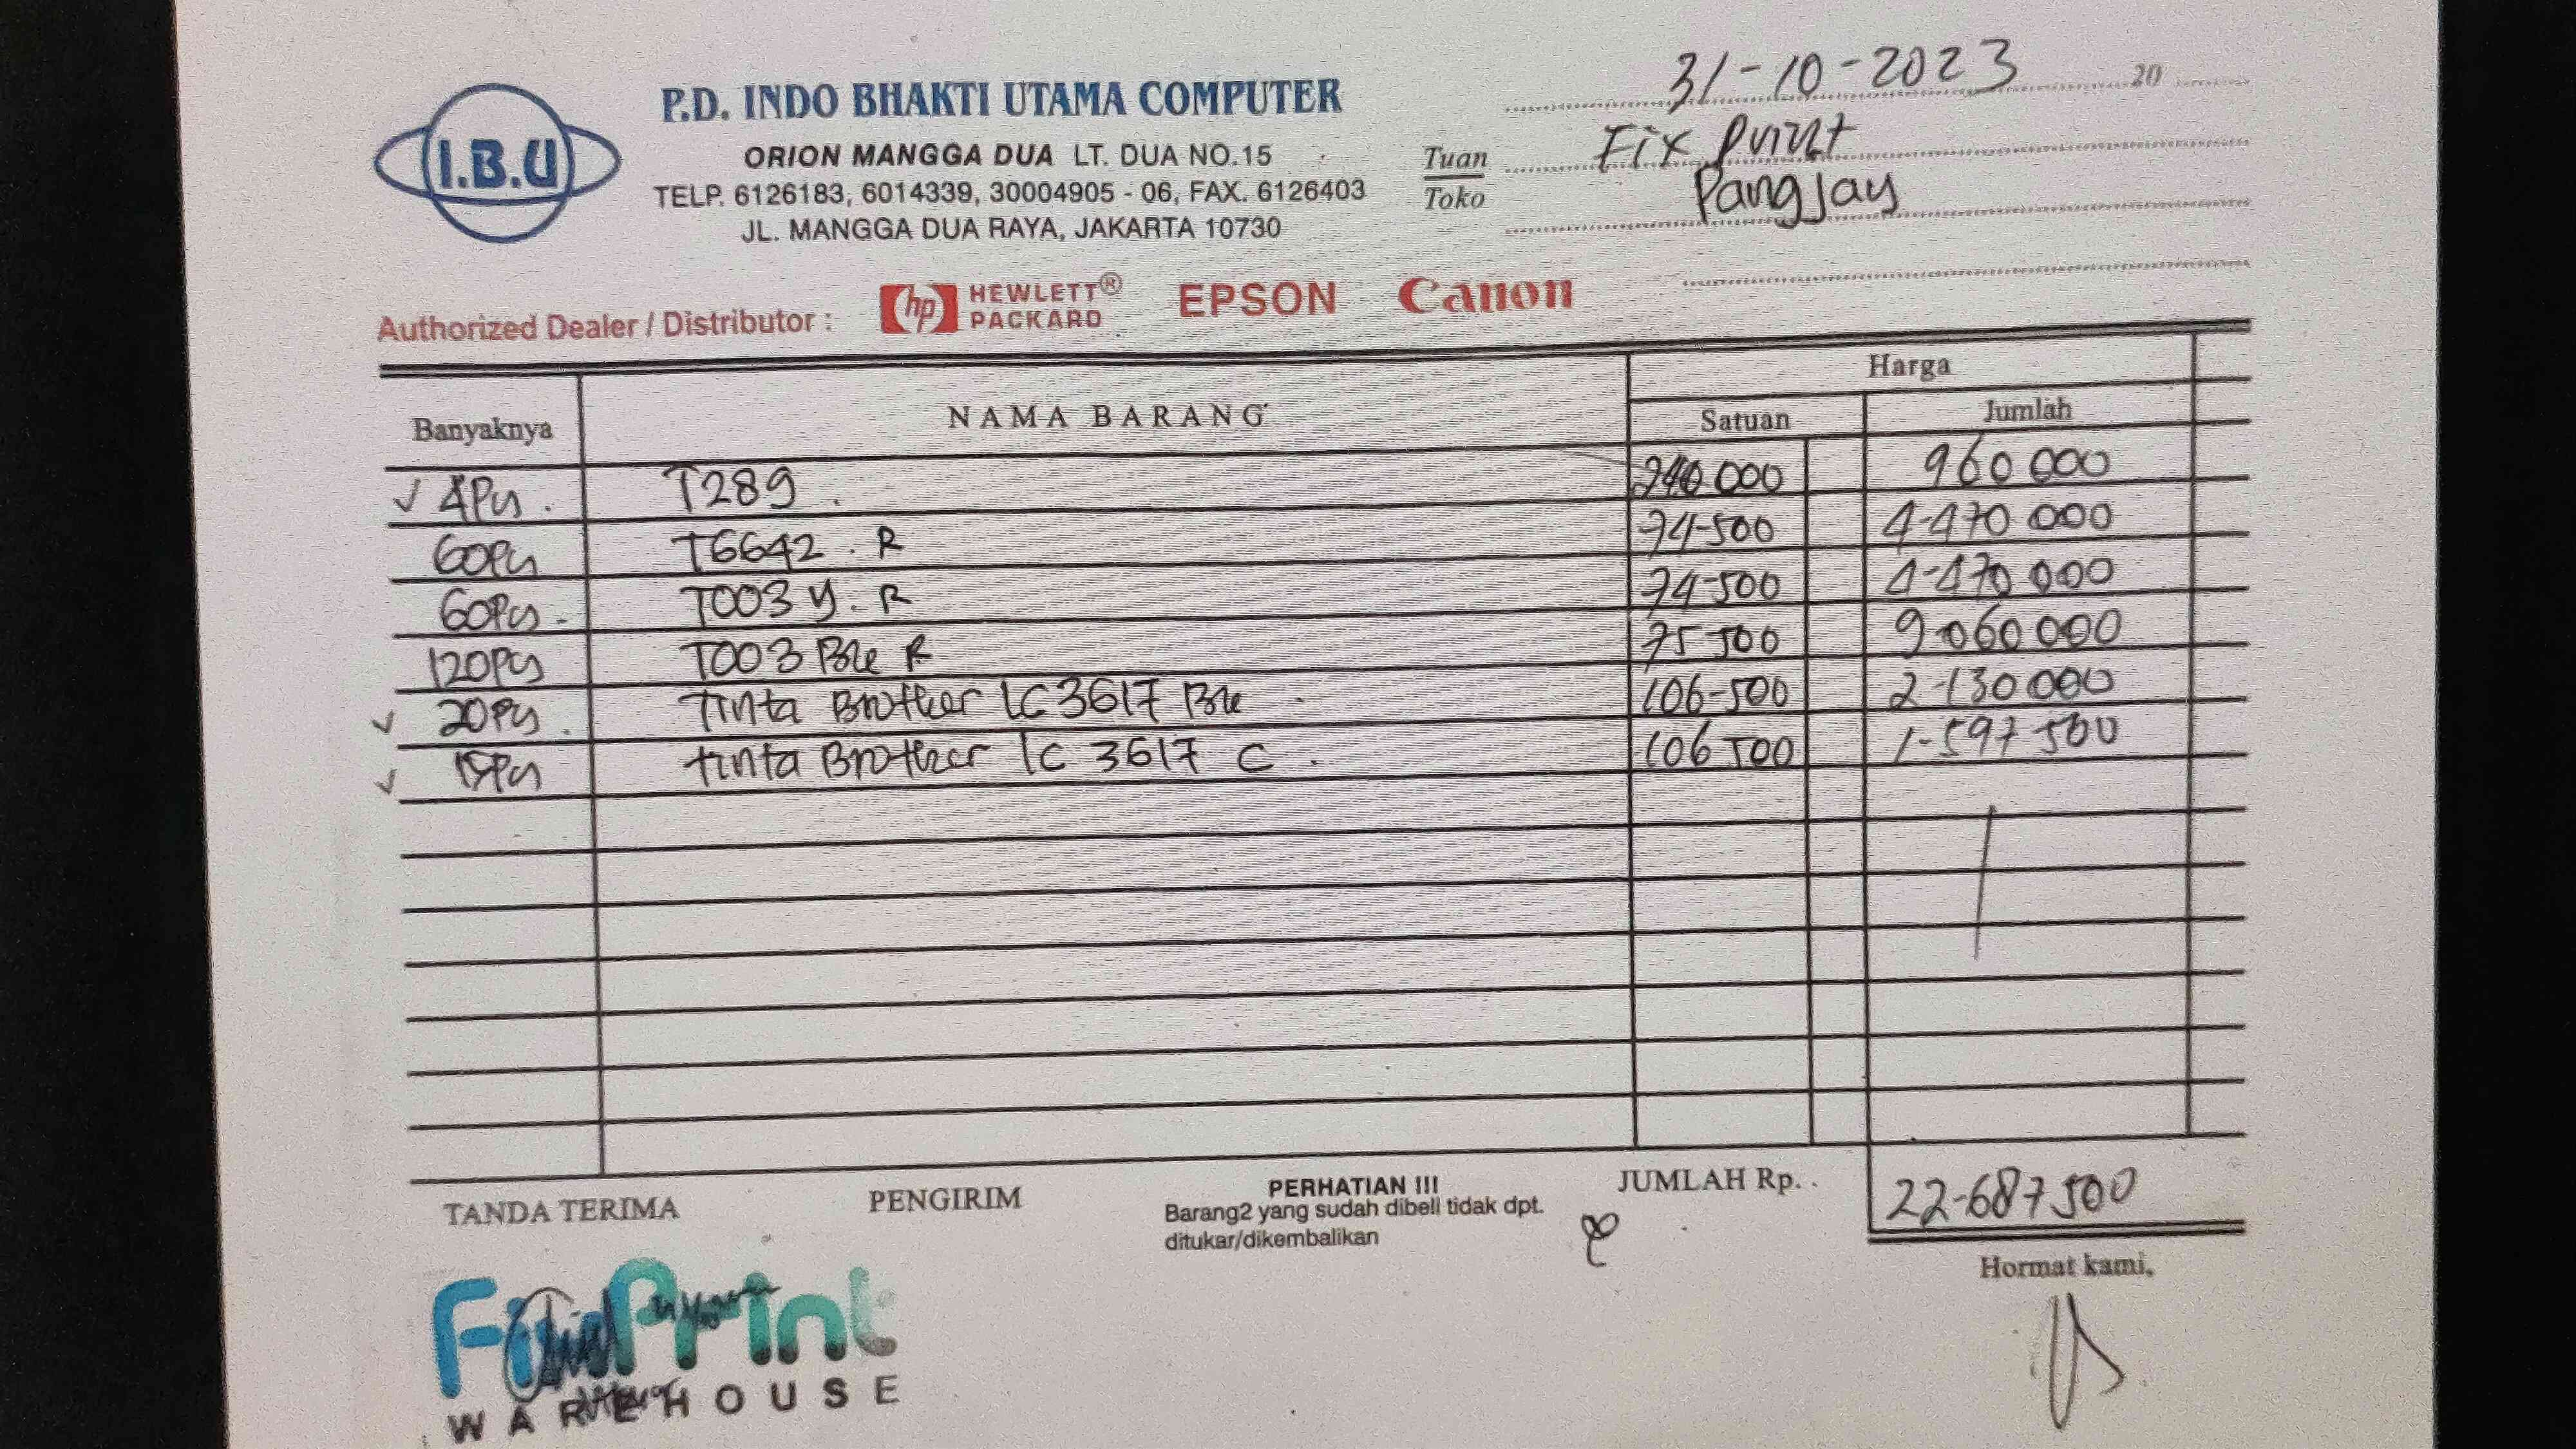 I.B.U
P.D. INDO BHAKTI UTAMA COMPUTER
ORION MANGGA DUA LT. DUA NO.15
TELP. 6126183, 6014339, 30004905 - 06, FAX. 6126403
JL. MANGGA DUA RAYA, JAKARTA 10730
31-10-2023 20
Tuan Fix Print
Toko Pangjay
Authorized Dealer / Distributor : hp HEWLETT® PACKARD EPSON Canon
Banyaknya NAMA BARANG Harga
Satuan Jumlah
4Pcs. T289. 240 000 960 000
60Pcs T6642. R 74-500 4-470 000
60Pcs- T003 Y. R 74-500 4-470 000
120Pcs T003 Ble R 75 500 9-060 000
20Pcs. Tinta Brother LC 3617 Ble 106-500 2-130 000
15Pcs tinta Brother lc 3617 C. 106 500 1-597 500
TANDA TERIMA PENGIRIM PERHATIAN !!! JUMLAH Rp. . 22-687 500
Barang2 yang sudah dibeli tidak dpt.
ditukar/dikembalikan
Hormat kami,
FixPrint
WAREHOUSE